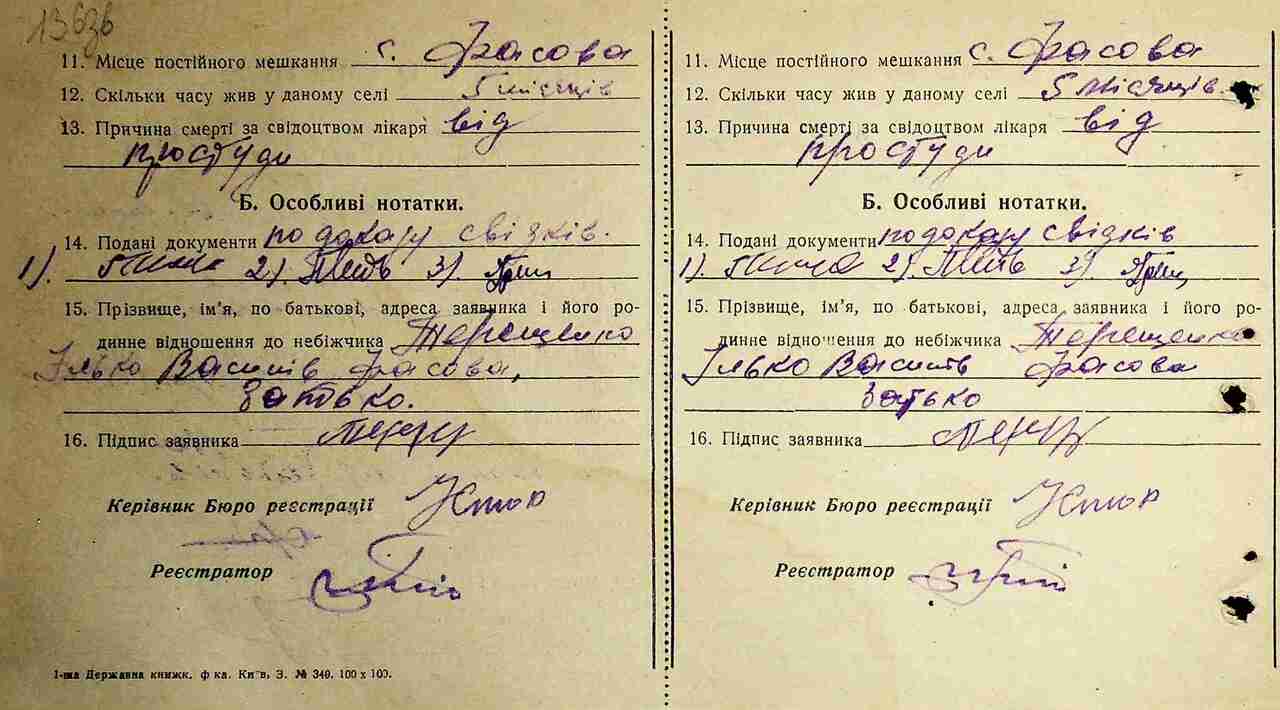 11. Місце постійного мешкання с. Фасова
12. Скільки часу жив у даному селі 5 місяців
13. Причина смерті за свідоцтвом лікаря від
простуди
Б. Особливі нотатки.
14. Подані документи по доказу свідків.
1). 2). 3).
15. Прізвище, ім'я, по батькові, адреса заявника і його ро-
динне відношення до небіжчика Терещенко
Ілько Фасова,
16. Підпис заявника
Керівник Бюро реєстрації
Реєстратор
1-ша Державна книжк. ф-ка. Київ, З. № 340. 100 х 100.
11. Місце постійного мешкання с. Фасова
12. Скільки часу жив у даному селі 5 місяців.
13. Причина смерті за свідоцтвом лікаря від
простуди
Б. Особливі нотатки.
14. Подані документи по доказу свідків
1). 2). 3).
15. Прізвище, ім'я, по батькові, адреса заявника і його ро-
динне відношення до небіжчика Терещенко
Ілько Фасова
16. Підпис заявника
Керівник Бюро реєстрації
Реєстратор